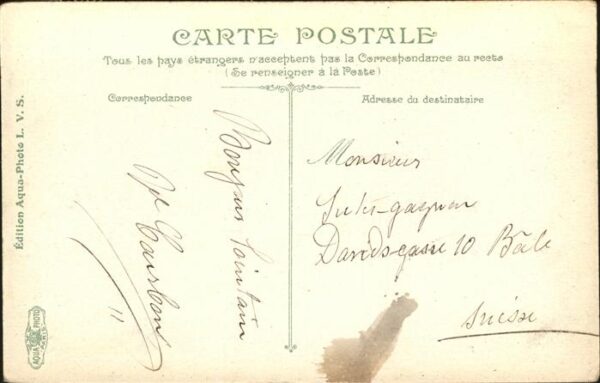 CARTE POSTALE
Tous les pays étrangers n'acceptent pas la Correspondance au recto
(Se renseigner à la Poste)
Correspondance
Adresse du destinataire
Bonjour lointain
Monsieur
10 Bâle
Suisse
Édition Aqua-Photo L. V. S.
AQUA PHOTO
PARIS